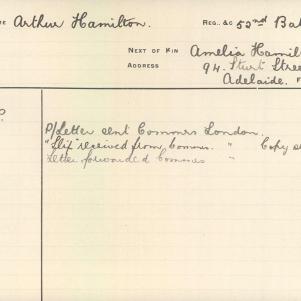 Arthur Hamilton. Reg., &c 52nd
Next of Kin Amelia
Address 94. Sturt
Adelaide.
P/Letter sent Commrs London.
"Slip" received from Commrs. " Copy
Letter forwarded Commrs "